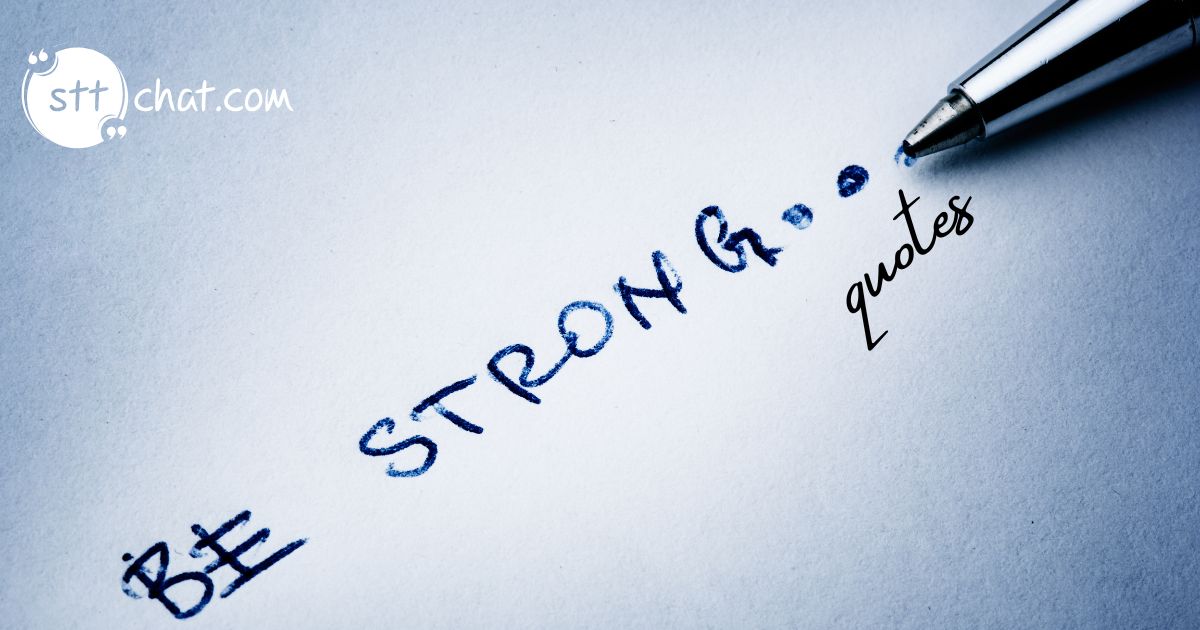 stt chat.com
BE STRONG...
quotes